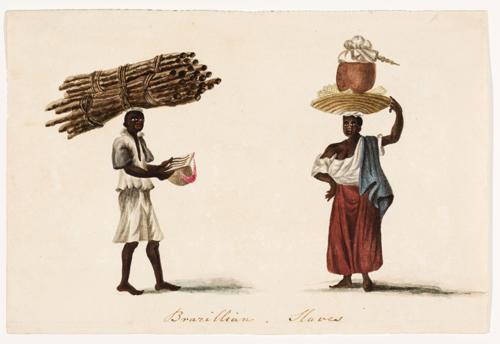 Brazillian. Slaves